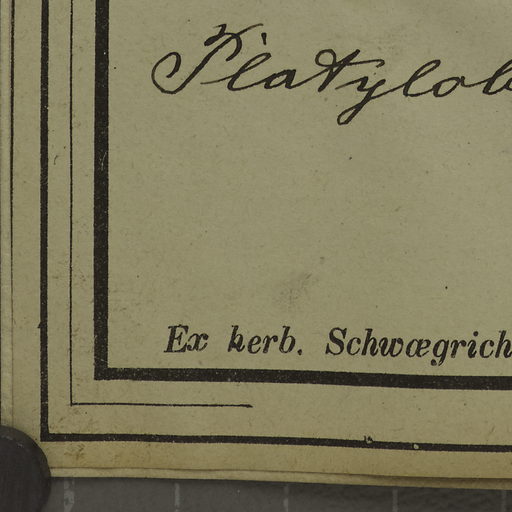 Platylob
Ex herb. Schwægrich